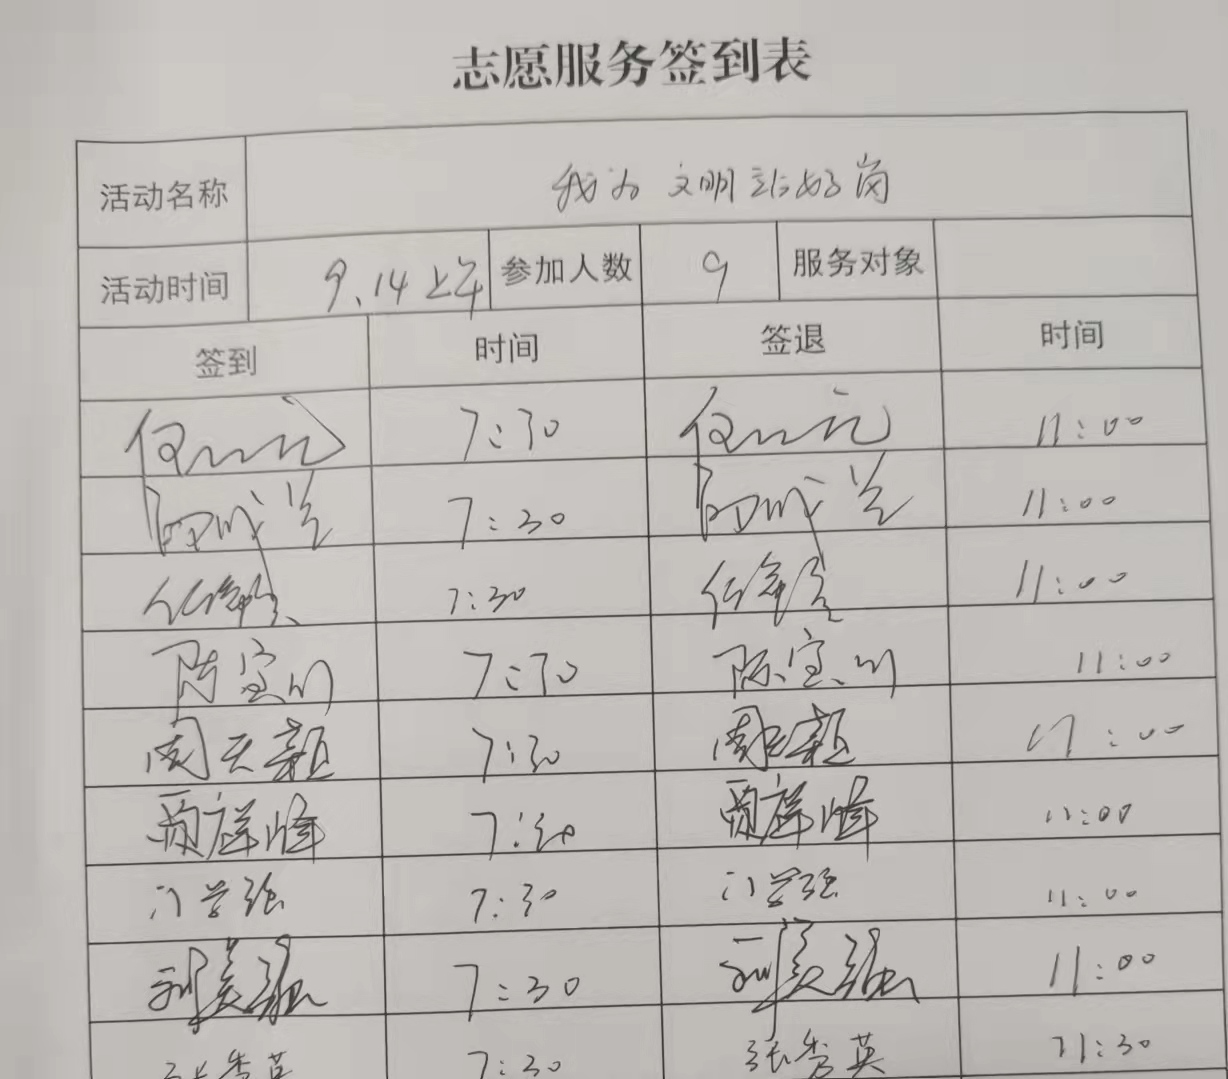 志愿服务签到表
活动名称 我为文明站好岗
活动时间 9.14上午 参加人数 9 服务对象
签到 时间 签退 时间
7:30 11:00
7:30 11:00
7:30 11:00
陈宝川 7:30 陈宝川 11:00
周天颖 7:30 周天颖 11:00
贾祥峰 7:30 贾祥峰 11:00
门学强 7:30 门学强 11:00
刘美强 7:30 刘美强 11:00
张秀英 7:30 张秀英 11:30